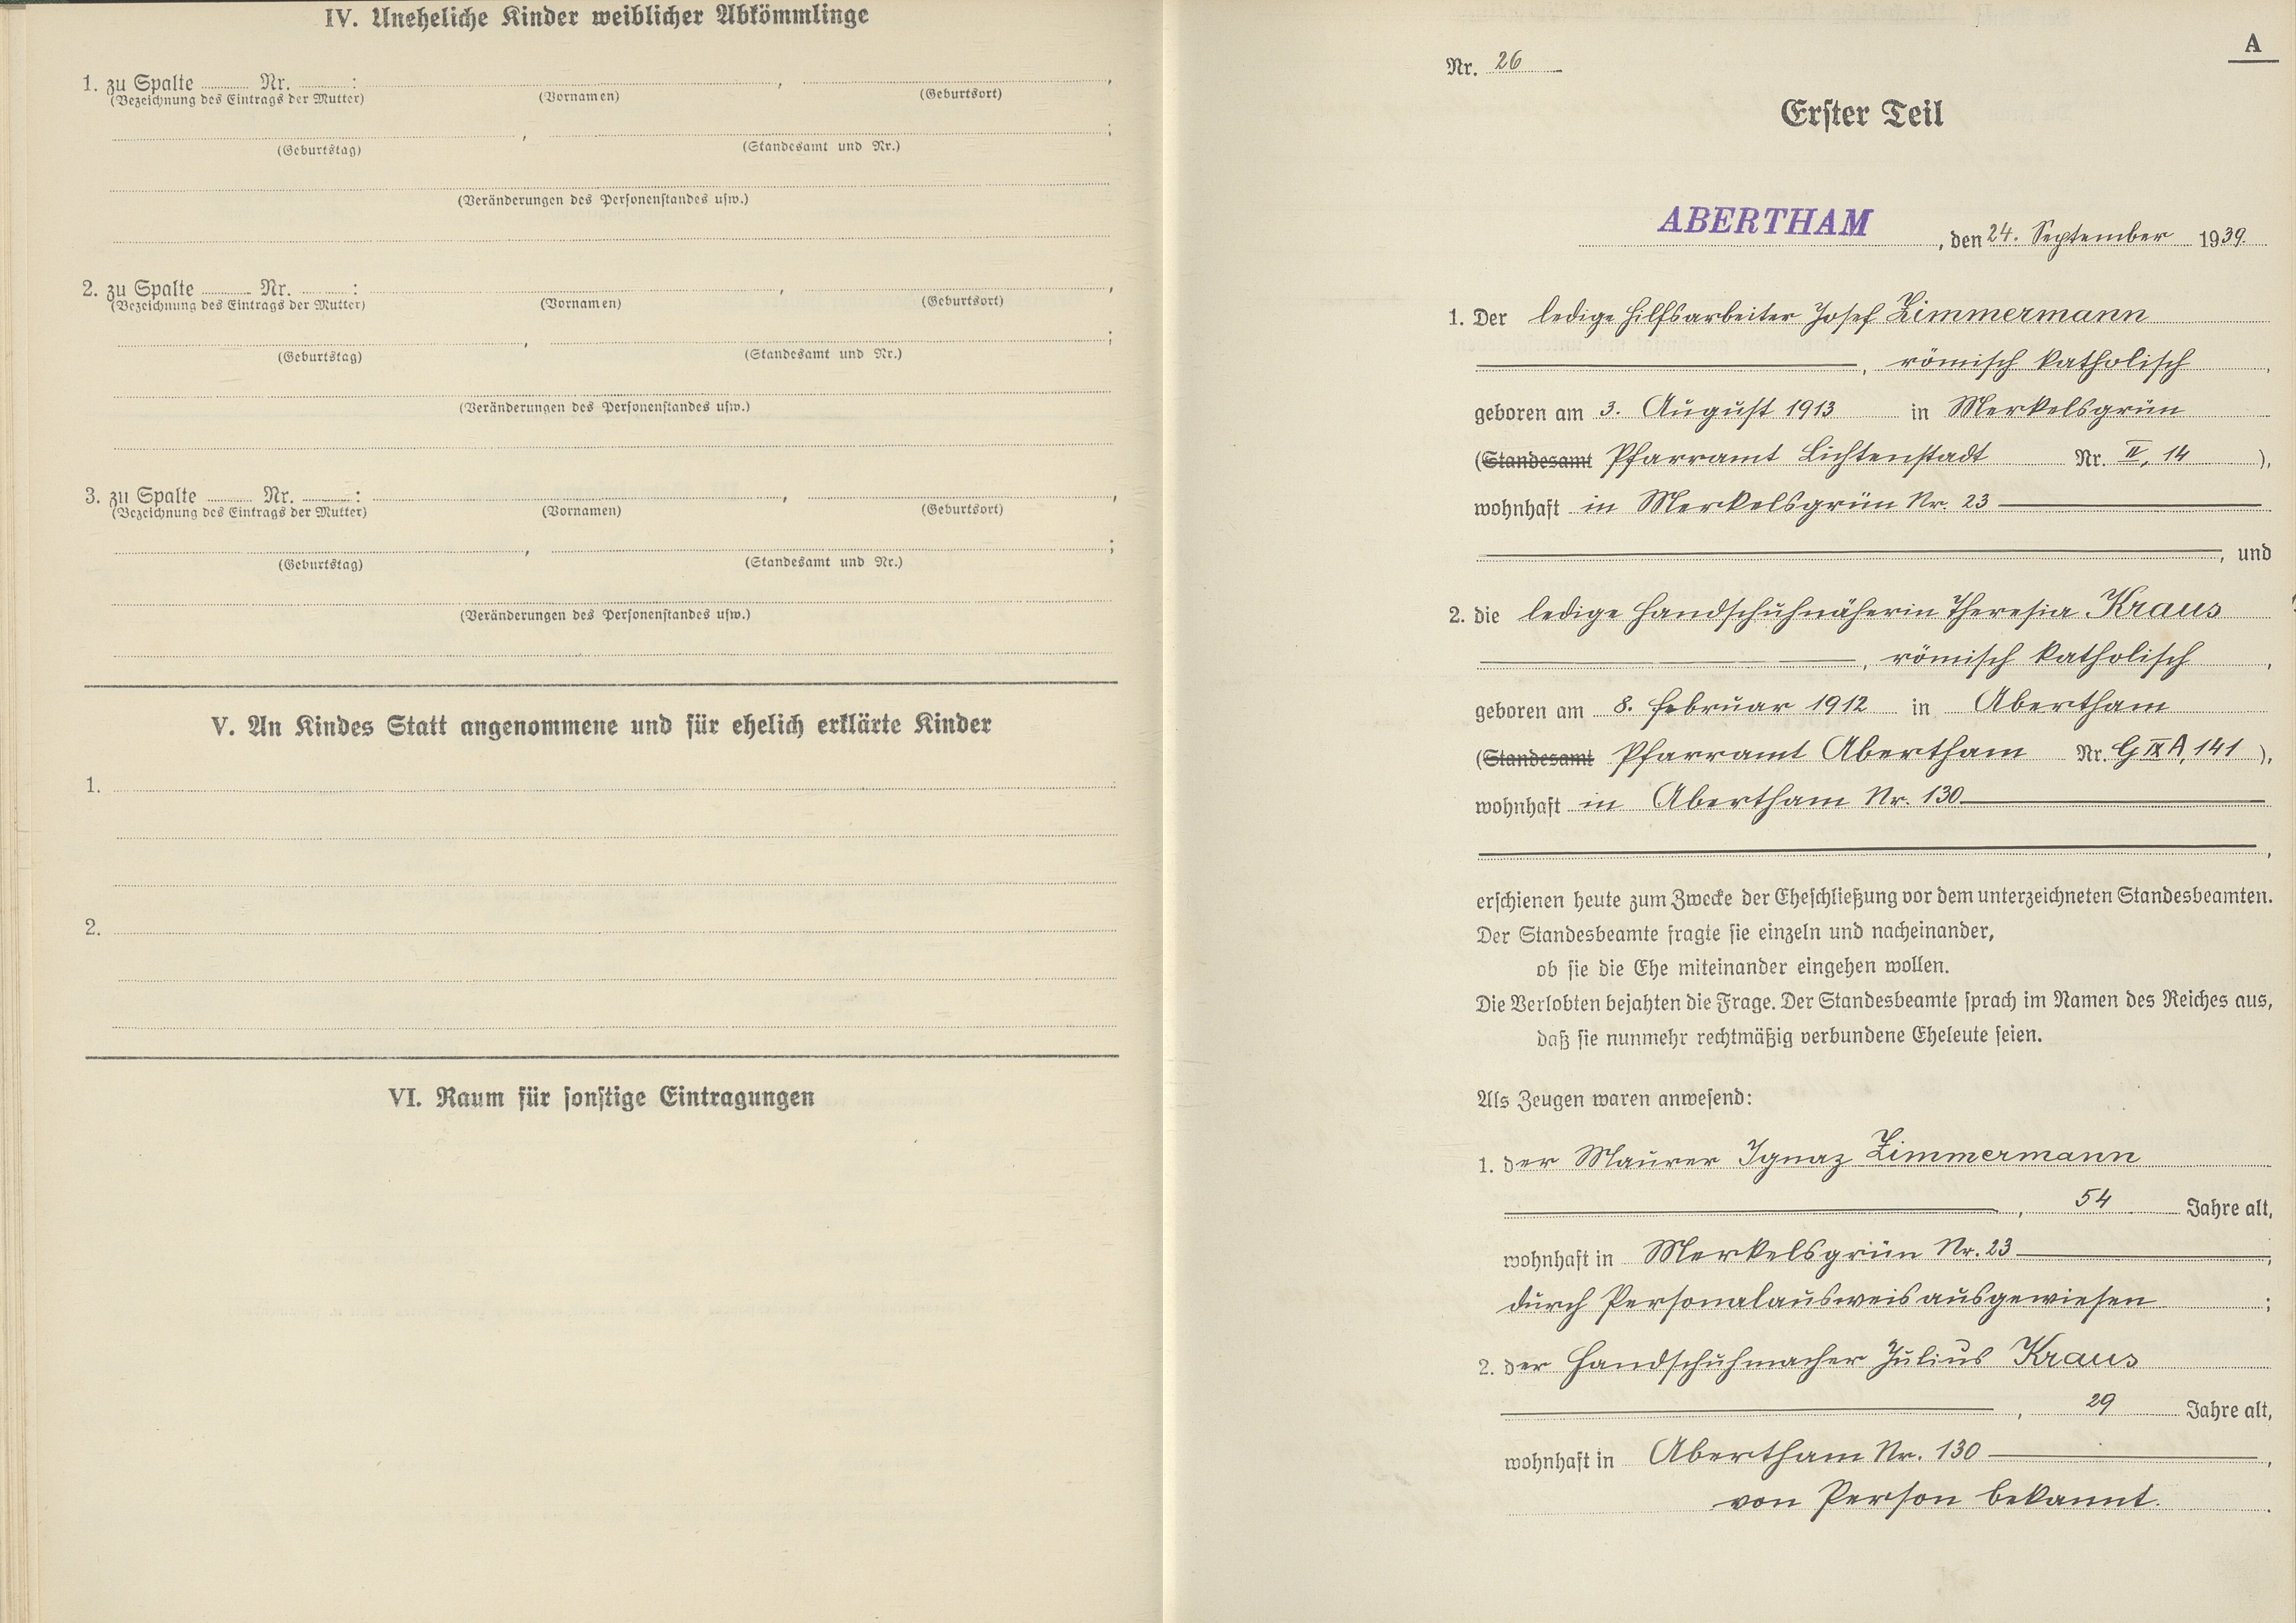 IV. Uneheliche Kinder weiblicher Abkömmlinge
1. zu Spalte ........ Nr. ........ : ........ , ........ ,
(Bezeichnung des Eintrags der Mutter) (Vornamen) (Geburtsort)
........ , ........ ;
(Geburtstag) (Standesamt und Nr.)
(Veränderungen des Personenstandes usw.)
2. zu Spalte ........ Nr. ........ : ........ , ........ ,
(Bezeichnung des Eintrags der Mutter) (Vornamen) (Geburtsort)
........ , ........ ;
(Geburtstag) (Standesamt und Nr.)
(Veränderungen des Personenstandes usw.)
3. zu Spalte ........ Nr. ........ : ........ , ........ ,
(Bezeichnung des Eintrags der Mutter) (Vornamen) (Geburtsort)
........ , ........ ;
(Geburtstag) (Standesamt und Nr.)
(Veränderungen des Personenstandes usw.)
V. An Kindes Statt angenommene und für ehelich erklärte Kinder
1.
2.
VI. Raum für sonstige Eintragungen
A
Nr. 26
Erster Teil
ABERTHAM, den 24. September 1939.
1. Der ledige Hilfsarbeiter Josef Zimmermann
, römisch katholisch,
geboren am 3. August 1913 in Merkelsgrün
(Standesamt Pfarramt Lichtenstadt Nr. II, 14),
wohnhaft in Merkelsgrün Nr. 23
, und
2. die ledige Handschuhnäherin Theresia Kraus
, römisch katholisch,
geboren am 8. Februar 1912 in Abertham
(Standesamt Pfarramt Abertham Nr. G IX A, 141),
wohnhaft in Abertham Nr. 130
,
erschienen heute zum Zwecke der Eheschließung vor dem unterzeichneten Standesbeamten.
Der Standesbeamte fragte sie einzeln und nacheinander,
ob sie die Ehe miteinander eingehen wollen.
Die Verlobten bejahten die Frage. Der Standesbeamte sprach im Namen des Reiches aus,
daß sie nunmehr rechtmäßig verbundene Eheleute seien.
Als Zeugen waren anwesend:
1. der Maurer Ignaz Zimmermann
, 54 Jahre alt,
wohnhaft in Merkelsgrün Nr. 23,
durch Personalausweis ausgewiesen;
2. der Handschuhmacher Julius Kraus
, 29 Jahre alt,
wohnhaft in Abertham Nr. 130,
von Person bekannt.